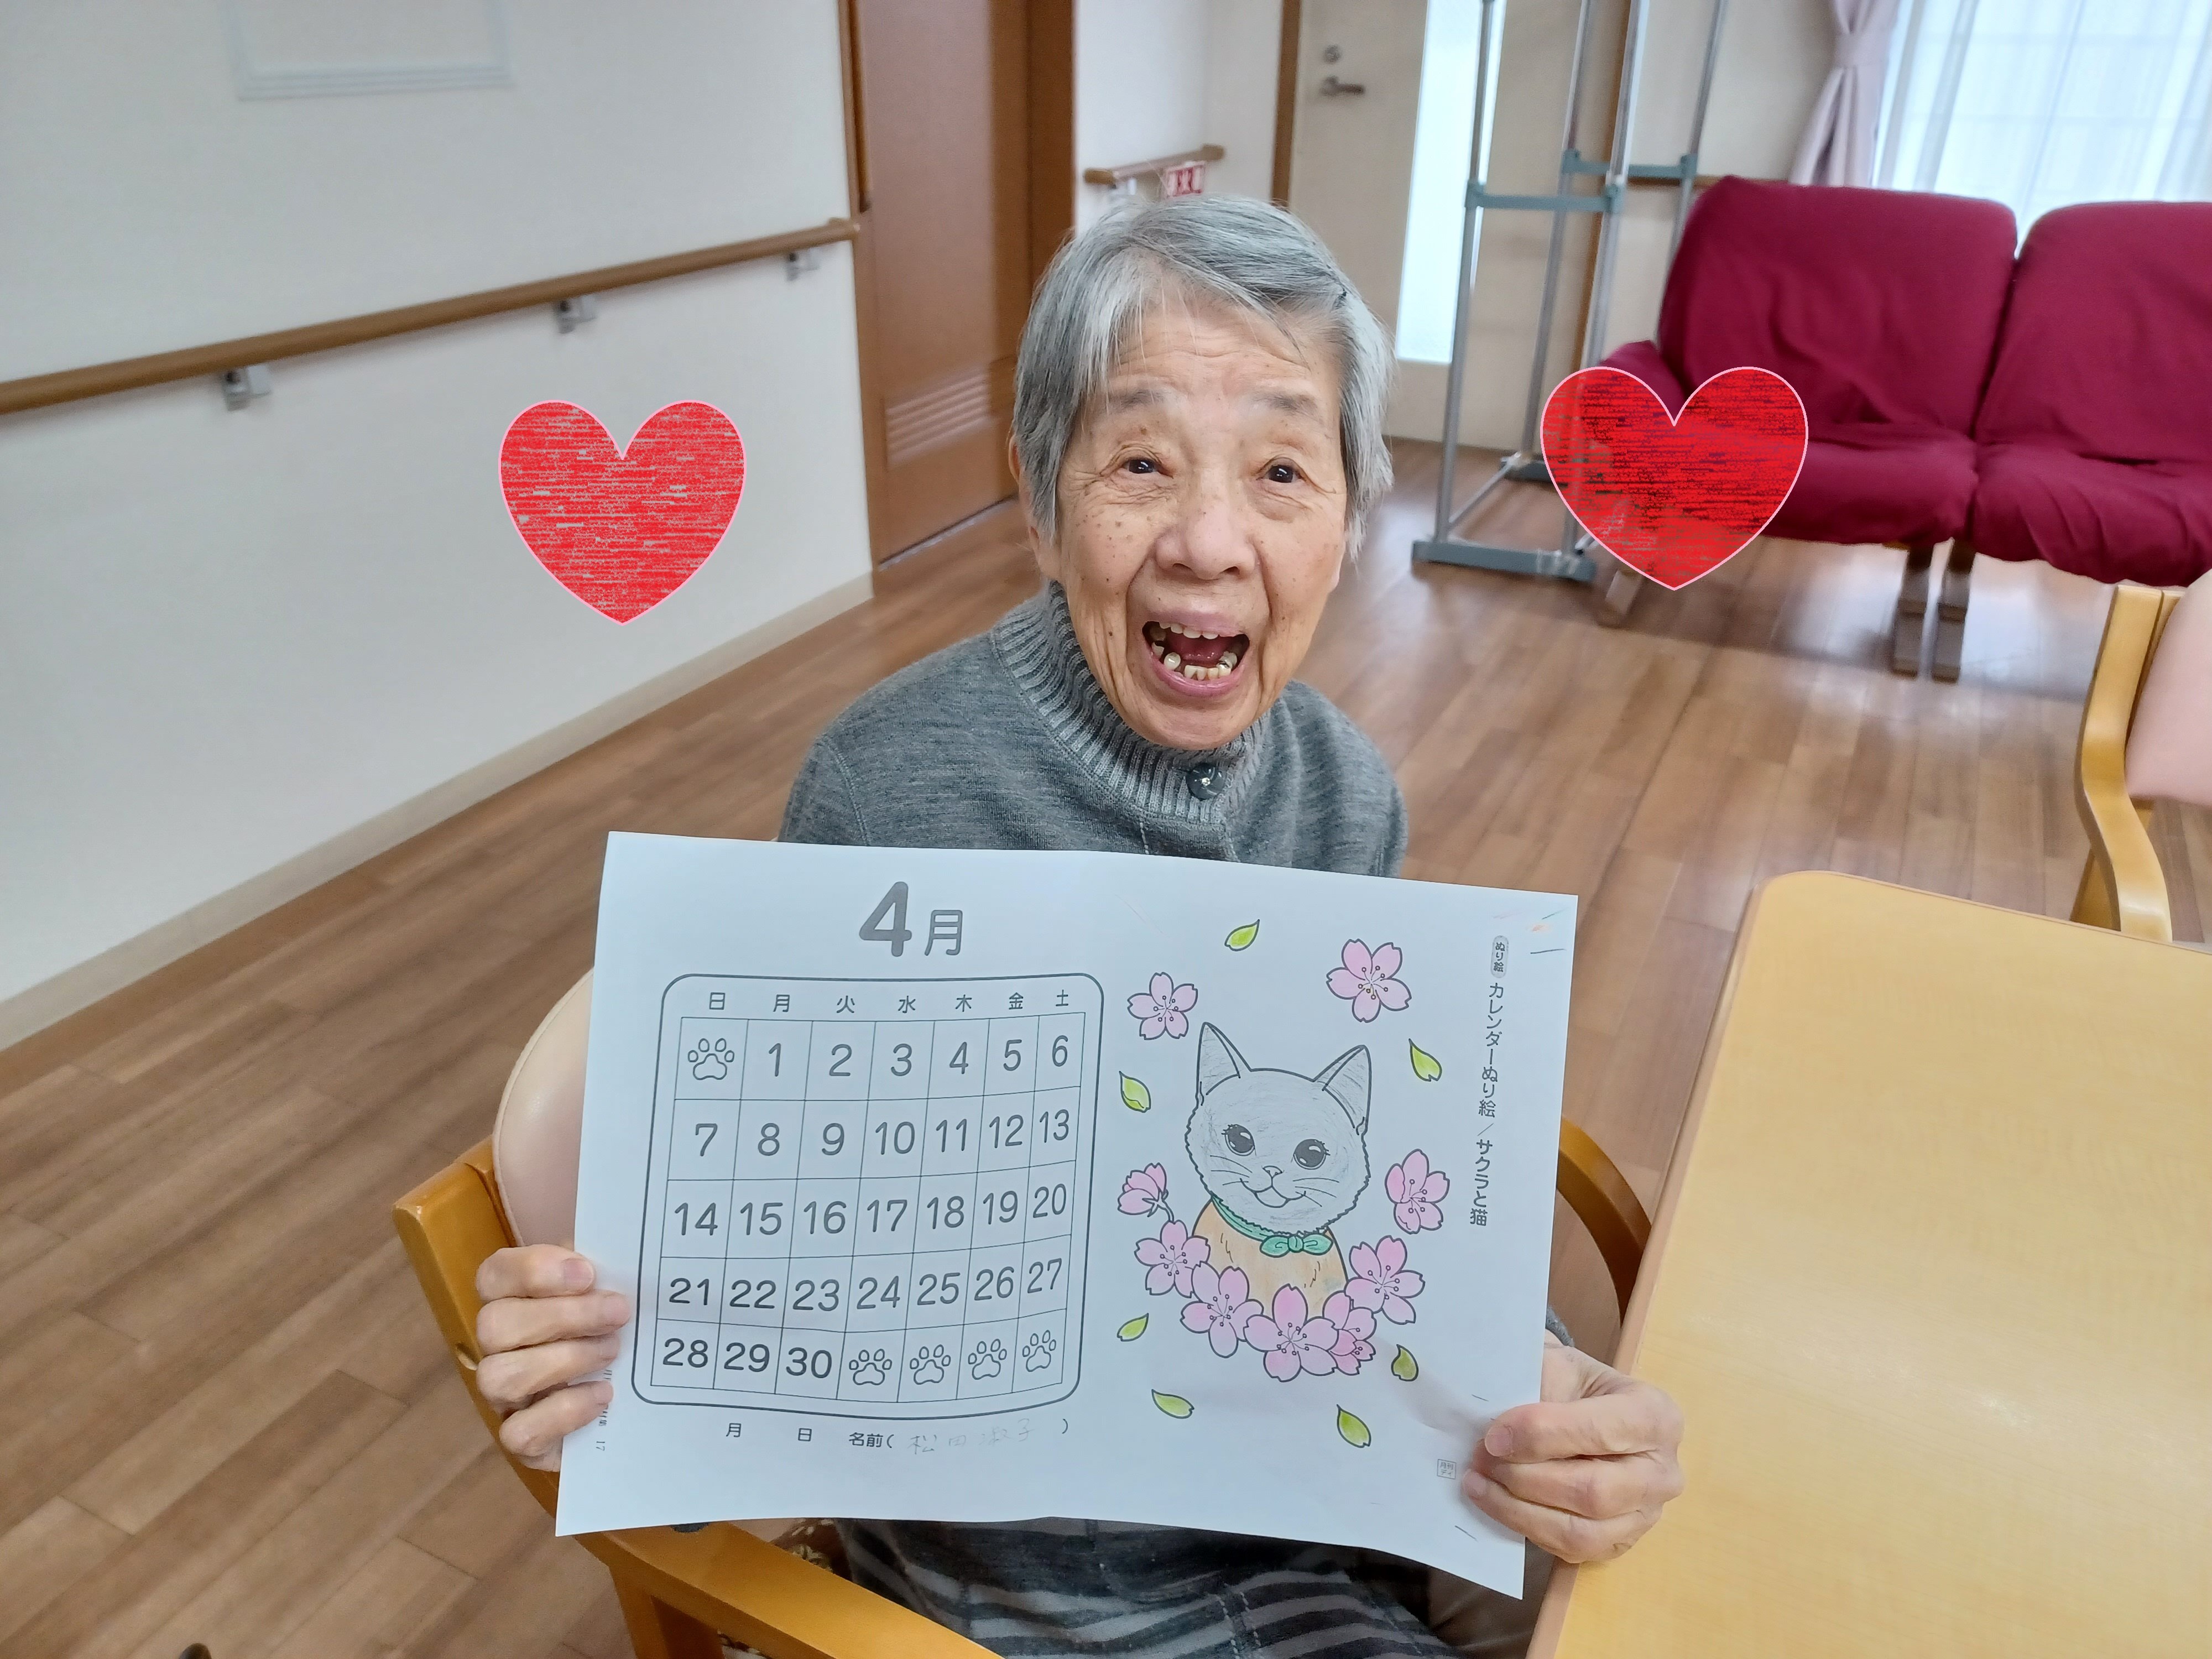 4月
日 月 火 水 木 金 土
1 2 3 4 5 6
7 8 9 10 11 12 13
14 15 16 17 18 19 20
21 22 23 24 25 26 27
28 29 30
月 日 名前(松田淑子)
ぬり絵 カレンダーぬり絵/サクラと猫
17